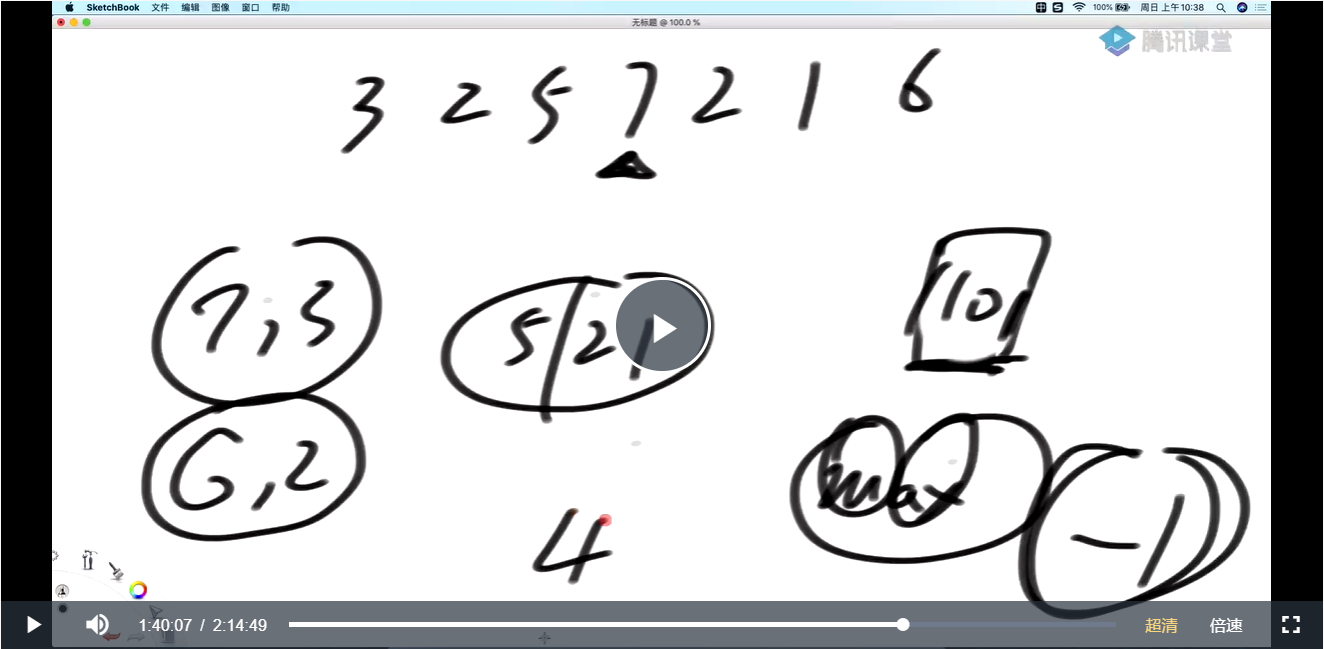 SketchBook 文件 编辑 图像 窗口 帮助 100% 周日 上午10:38
无标题 @ 100.0 %
腾讯课堂
3 2 5 7 2 1 6
7,3 5 2 1 1101
6,2 max -1
4
1:40:07 / 2:14:49 超清 倍速